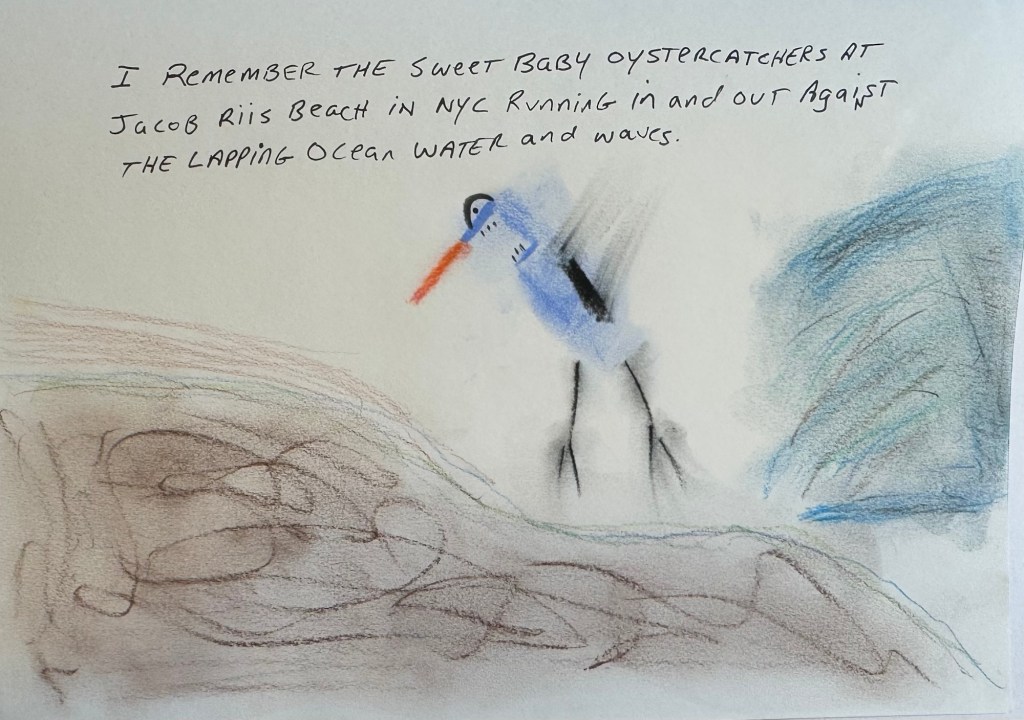 I REMEMBER THE SWEET BABY OYSTERCATCHERS AT
JACOB Riis BEACH iN NYC RUNNiNG in and OUT AgaiNST
THE LAPPiNG OCean WATER and waves.